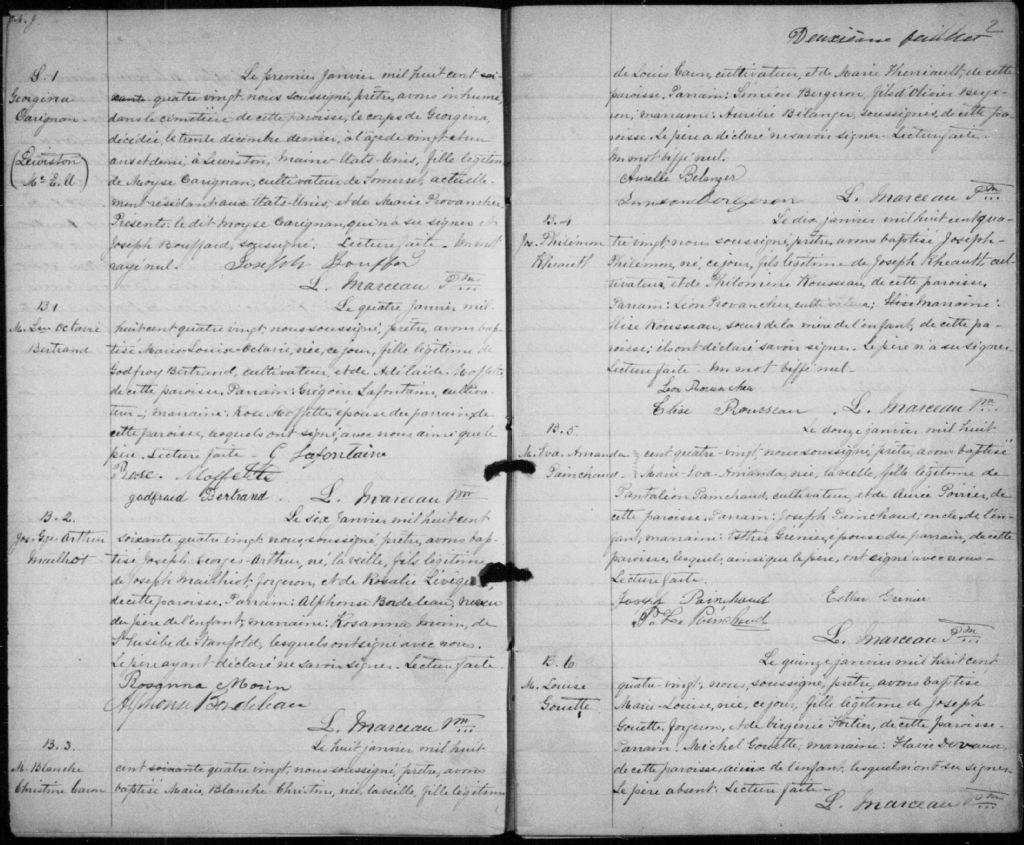 S. 1
Georgina
Carignan
(Lewiston
Me E.U)
Le premier janvier mil huit cent soi
xante quatre vingt, nous soussigné, prêtre, avons inhumé
dans le cimetière de cette paroisse, le corps de Georgina,
décédée, le trente décembre dernier, à l'age de vingt et un
ans et demi à Lewiston, Maine États-Unis, fille légitime
de Moyse Carignan, cultivateur de Somerset, actuelle-
ment résidant aux États-Unis, et de Marie Provancher
Présents: le dit Moyse Carignan, qui n'a su signer et
Joseph Bouffard, soussigné. Lecture faite. Un mot
rayé nul. Joseph Bouffar
L. Marceau Ptre
B. 1
M. Lse Octavie
Bertrand
Le quatre janvier mil
huit cent quatre vingt, nous soussigné, prêtre, avons bap-
tisé Marie-Louise-Octavie, née, ce jour, fille légitime de
Godfroy Bertrand, cultivateur, et de Adélaïde Moffette
de cette paroisse. Parrain: Grégoire Lafontaine, cultiva-
teur; marraine: Rose Moffette, épouse du parrain, de
cette paroisse, lesquels ont signé, avec nous ainsi que le
père. Lecture faite - G Lafontaine
Rose Moffette
godfraid Bertrand. L. Marceau Ptre
B. 2.
Jos. Geo. Arthur
Mailhot
Le six janvier mil huit cent
soixante quatre vingt, nous, soussigné, prêtre, avons bap-
tisé Joseph-Georges-Arthur, né, la veille, fils légitime
de Joseph Mailhiot, forgeron, et de Rosalie Lévêque
de cette paroisse. Parrain: Alphonse Bordeleau, neveu
du père de l'enfant; marraine: Rosanna Morin, de
St Eusèbe de Stanfold, lesquels ont signé avec nous.
Le père ayant déclaré ne savoir signer. Lecture faite
Rosanna Morin
Alphonse Bordeleau
L. Marceau Ptre
B. 3.
M. Blanche
Christine Caron
Le huit janvier mil huit
cent soixante quatre vingt, nous soussigné, prêtre, avons
baptisé Marie, Blanche Christine, née la veille, fille légitime
2
Deuxième feuillet
de Louis Caron, cultivateur, et de Marie Therriault, de cette
paroisse. Parrain: Siméon Bergeron, fils d'Olivier Berge-
ron, marraine: Aurélie Bélanger, soussignés, de cette pa-
roisse. Le père a déclaré ne savoir signer - Lecture faite -
Un mot biffé nul.
Aurelie Belanger
Simeon Bergeron L. Marceau Ptre
B. 4
Jos. Philémon
Rheault
Le dix janvier mil huit cent qua-
tre vingt, nous soussigné, prêtre, avons baptisé Joseph-
Philémon, né, ce jour, fils légitime de Joseph Rheault, cul-
tivateur, et de Philomène Rousseau, de cette paroisse.
Parrain: Léon Provancher, cultivateur; Elise Marraine:
Elise Rousseau, soeur de la mère de l'enfant, de cette pa-
roisse; ils ont déclaré savoir signer. Le père n'a su signer
Lecture faite - Un mot biffé nul -
Léon Provancher
Elise Rousseau L. Marceau Ptre
B. 5.
M. Eva Amanda
Painchaud
Le douze janvier mil huit
cent quatre-vingt, nous soussigné, prêtre, avons baptisé
Marie-Eva-Amanda, née, la veille, fille légitime de
Pantaléon Painchaud, cultivateur, et de Poirier, de
cette paroisse. Parrain: Joseph Painchaud, oncle de l'en-
fant; marraine: Esther Grenier, épouse du parrain, de cette
paroisse, lesquels, ainsi que le père, ont signé avec nous -
Lecture faite.
Joseph Painchaud Esther Grenier
Painchaud
L. Marceau Ptre
B. 6
M. Louise
Gouette
Le quinze janvier mil huit cent
quatre-vingt, nous, soussigné, prêtre, avons baptisé
Marie-Louise, née, ce jour, fille légitime de Joseph
Gouette, forgeron, et de Virginie Fortier, de cette paroisse -
Parrain: Michel Gouette, marraine: Flavie
de cette paroisse, aïeux de l'enfant, lesquels n'ont su signer
Le père absent. Lecture faite -
L. Marceau Ptre